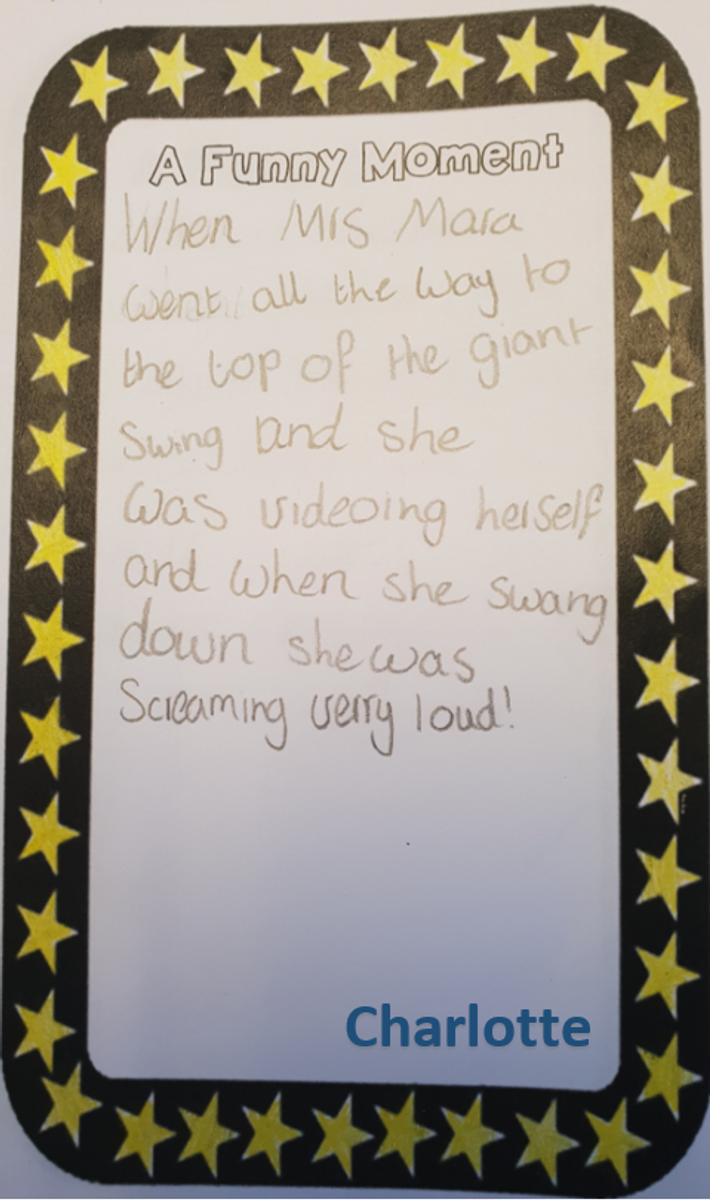 A Funny Moment
When Mrs Mara
went all the way to
the top of the giant
swing and she
was videoing herself
and when she swang
down she was
Screaming verry loud!
Charlotte